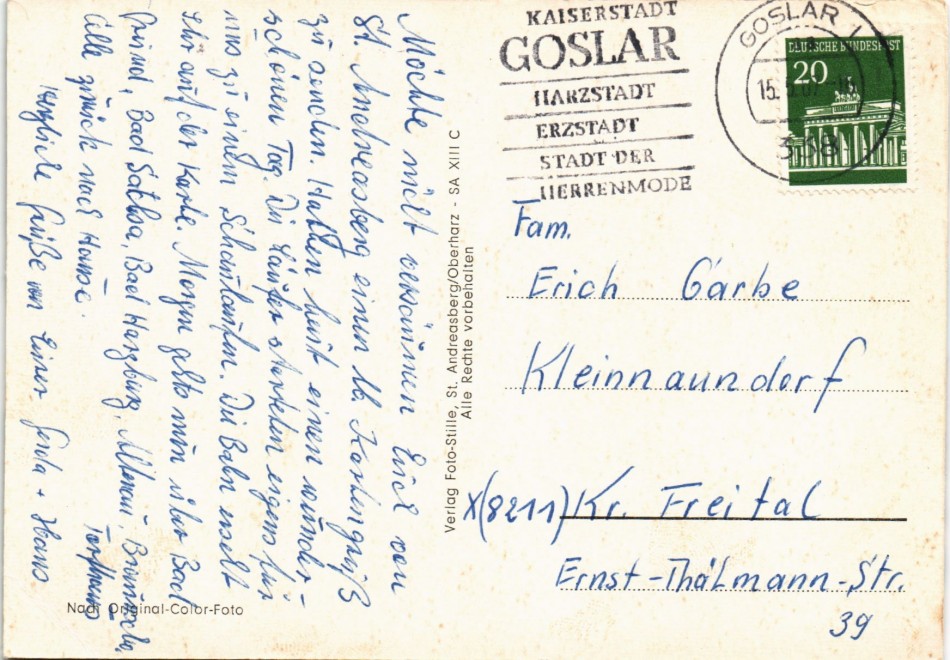 KAISERSTADT
GOSLAR
HARZSTADT
ERZSTADT
STADT DER
HERRENMODE
GOSLAR
15.
338
DEUTSCHE BUNDESPOST
20
Möchte nicht versäumen Euch von
St. Andreasberg einen lb. Kartengruß
zu senden. Hatten heut einen wunder-
schönen Tag. Die Läufer starteten eigens für
uns zu einem Schaulaufen. Die Bahn seht
Ihr auf der Karte. Morgen geht's nun über Bad
Grund, Bad Sachsa, Bad Harzburg, Altenau, Braunlage,
alle zurück nach Hause.
Herzliche Grüße von Eurer Gerda + Hans
Verlag Foto-Stille, St. Andreasberg/Oberharz - SA XIII C
Alle Rechte vorbehalten
Fam.
Erich Garbe
Kleinnaundorf
X(8211) Kr. Freital
Ernst-Thälmann-Str.
39
Nach Original-Color-Foto